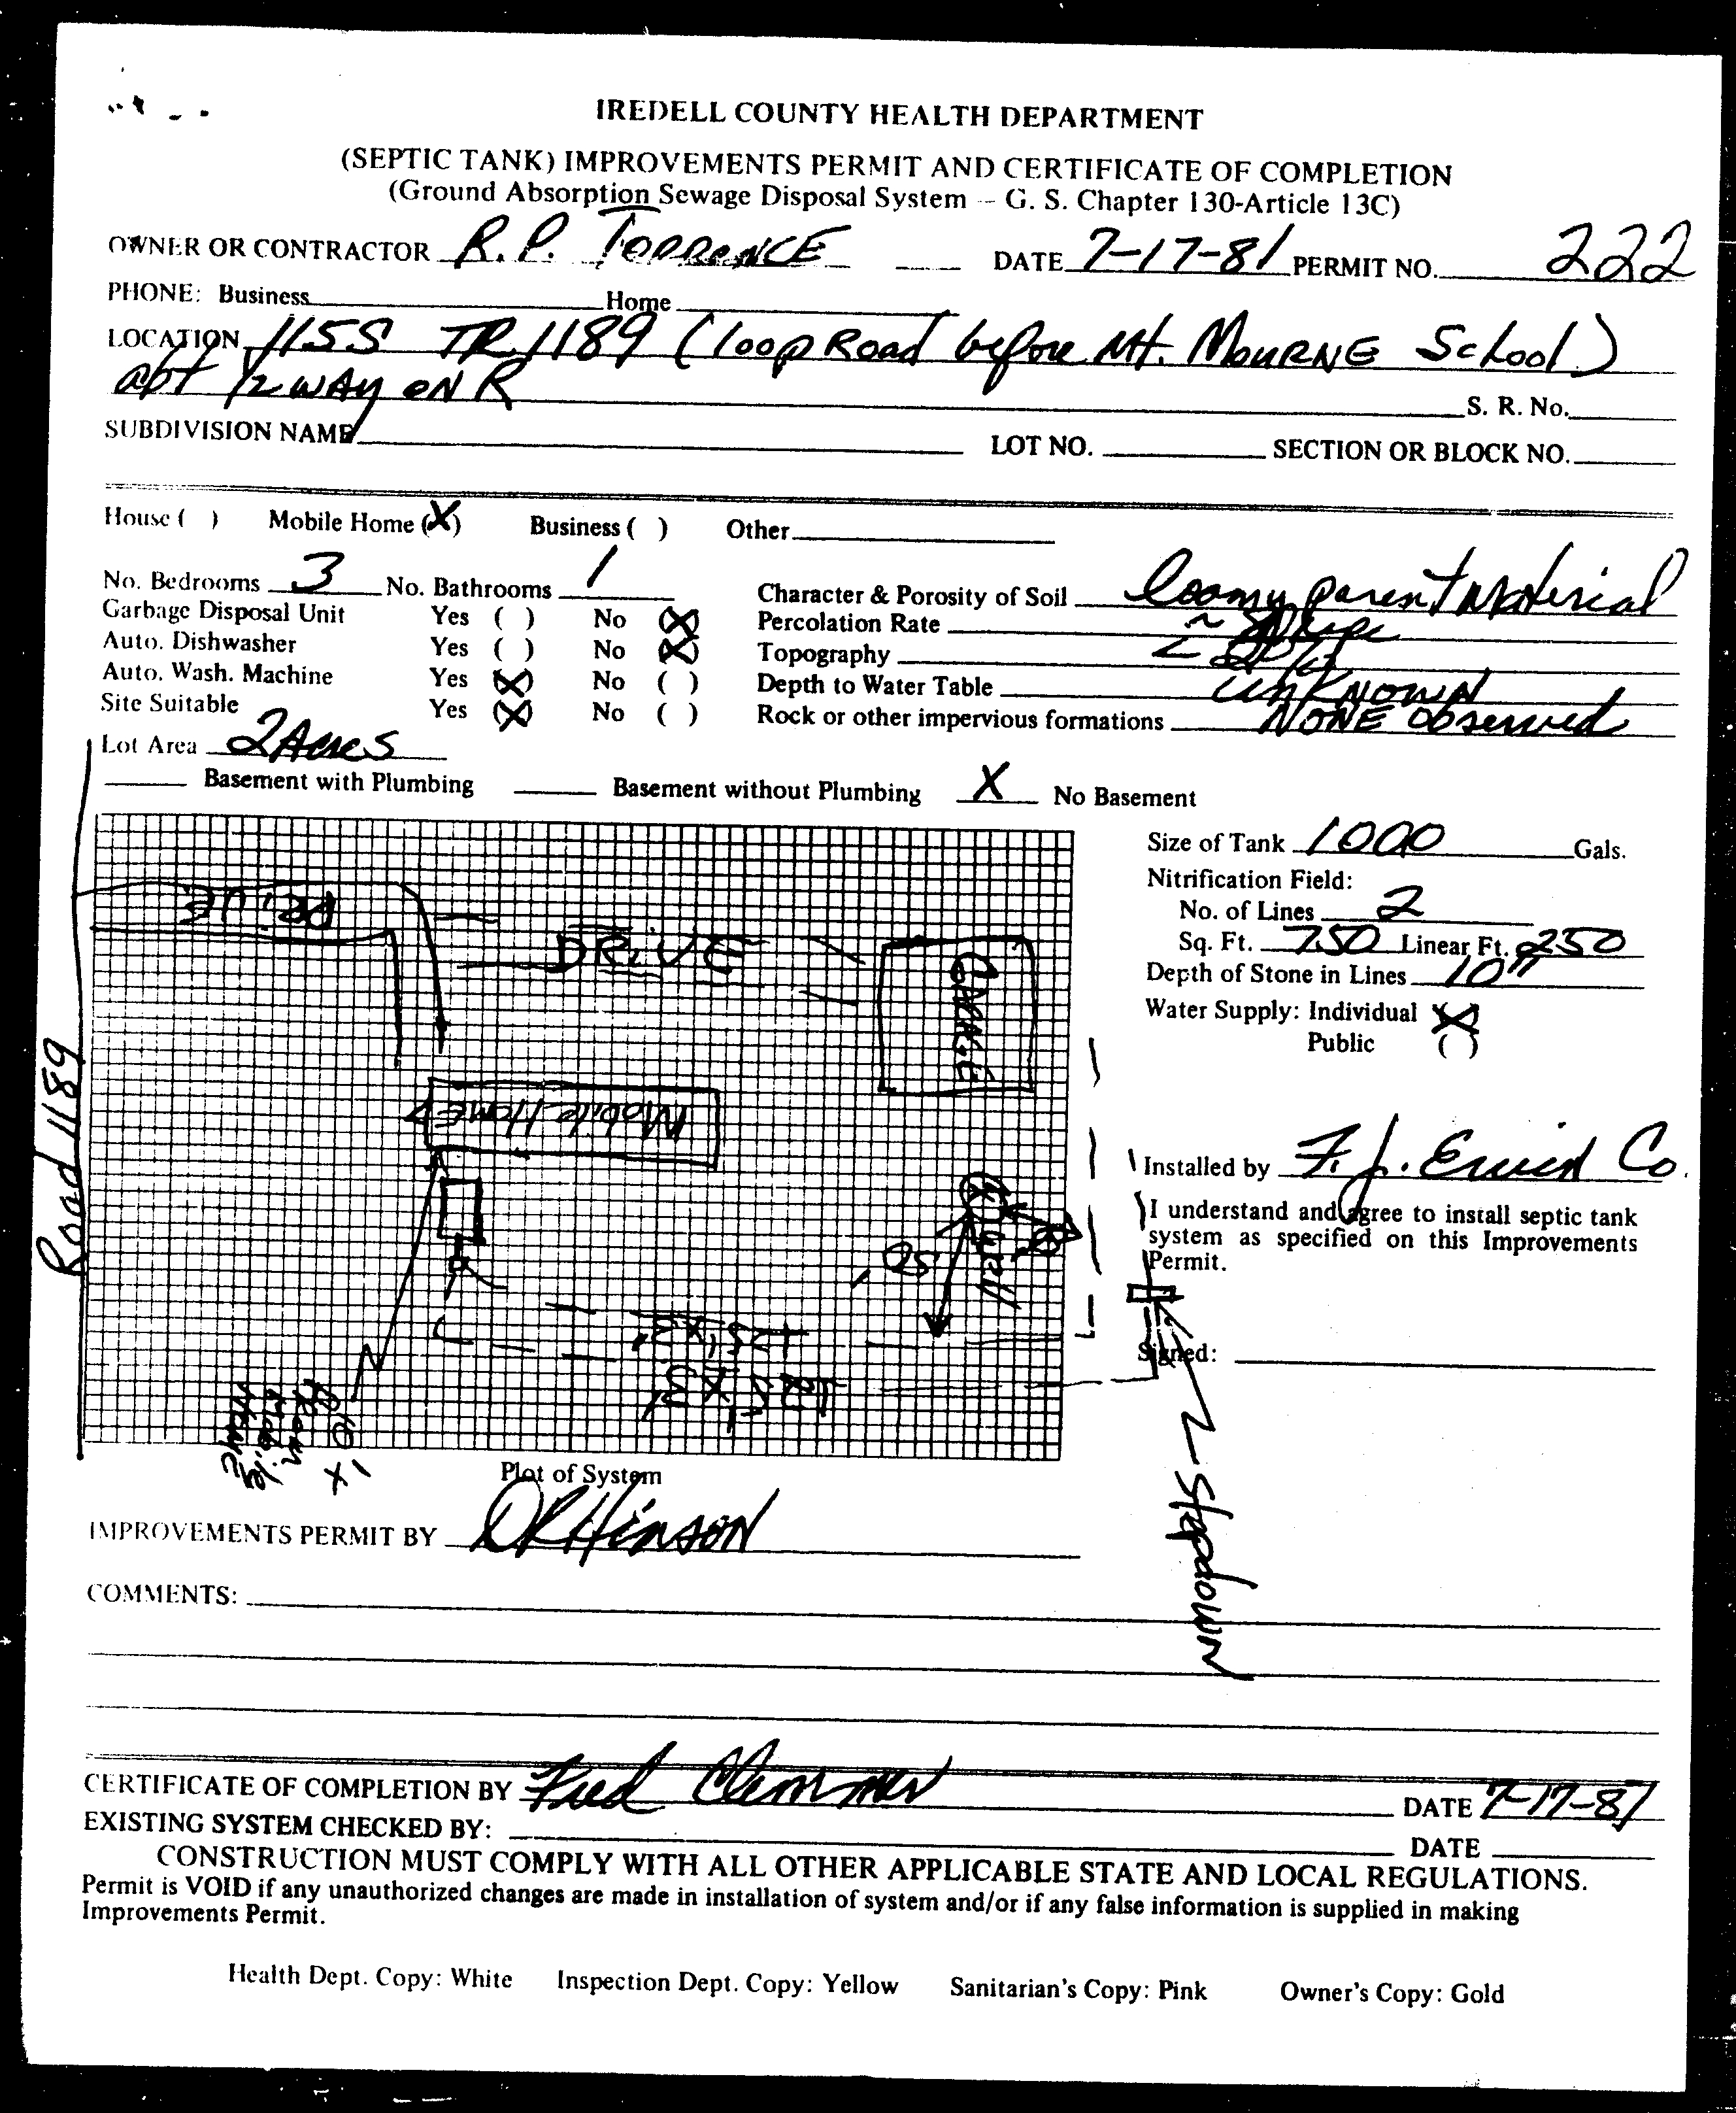 IREDELL COUNTY HEALTH DEPARTMENT
(SEPTIC TANK) IMPROVEMENTS PERMIT AND CERTIFICATE OF COMPLETION
(Ground Absorption Sewage Disposal System -- G. S. Chapter 130-Article 13C)
OWNER OR CONTRACTOR R.P. TORRENCE DATE 7-17-81 PERMIT NO. 222
PHONE: Business Home
LOCATION 115S TR 1189 (loop Road before Mt. MOURNE School)
abt 1/2 WAY ON R S. R. No.
SUBDIVISION NAME LOT NO. SECTION OR BLOCK NO.
House ( ) Mobile Home (X) Business ( ) Other
No. Bedrooms 3 No. Bathrooms 1 Character & Porosity of Soil loamy parent Material
Garbage Disposal Unit Yes ( ) No (X) Percolation Rate
Auto. Dishwasher Yes ( ) No (X) Topography
Auto. Wash. Machine Yes (X) No ( ) Depth to Water Table UNKNOWN
Site Suitable Yes (X) No ( ) Rock or other impervious formations NONE observed
Lot Area 2 Acres
Basement with Plumbing Basement without Plumbing X No Basement
Size of Tank 1000 Gals.
Nitrification Field:
No. of Lines 2
Sq. Ft. 750 Linear Ft. 250
Depth of Stone in Lines 10"
Water Supply: Individual (X)
Public ( )
Road 1189
DRIVE
DRIVE
GARAGE
Mobile Home
WELL
50'
125' x 3'
125' x 3'
10' x
from
Mobile
Home
Installed by F. J. Erwin Co.
I understand and agree to install septic tank
system as specified on this Improvements
Permit.
Signed:
Stepdown
Plot of System
IMPROVEMENTS PERMIT BY DR Hinson
COMMENTS:
CERTIFICATE OF COMPLETION BY Fred Clemmer DATE 7-17-81
EXISTING SYSTEM CHECKED BY: DATE
CONSTRUCTION MUST COMPLY WITH ALL OTHER APPLICABLE STATE AND LOCAL REGULATIONS.
Permit is VOID if any unauthorized changes are made in installation of system and/or if any false information is supplied in making
Improvements Permit.
Health Dept. Copy: White Inspection Dept. Copy: Yellow Sanitarian's Copy: Pink Owner's Copy: Gold